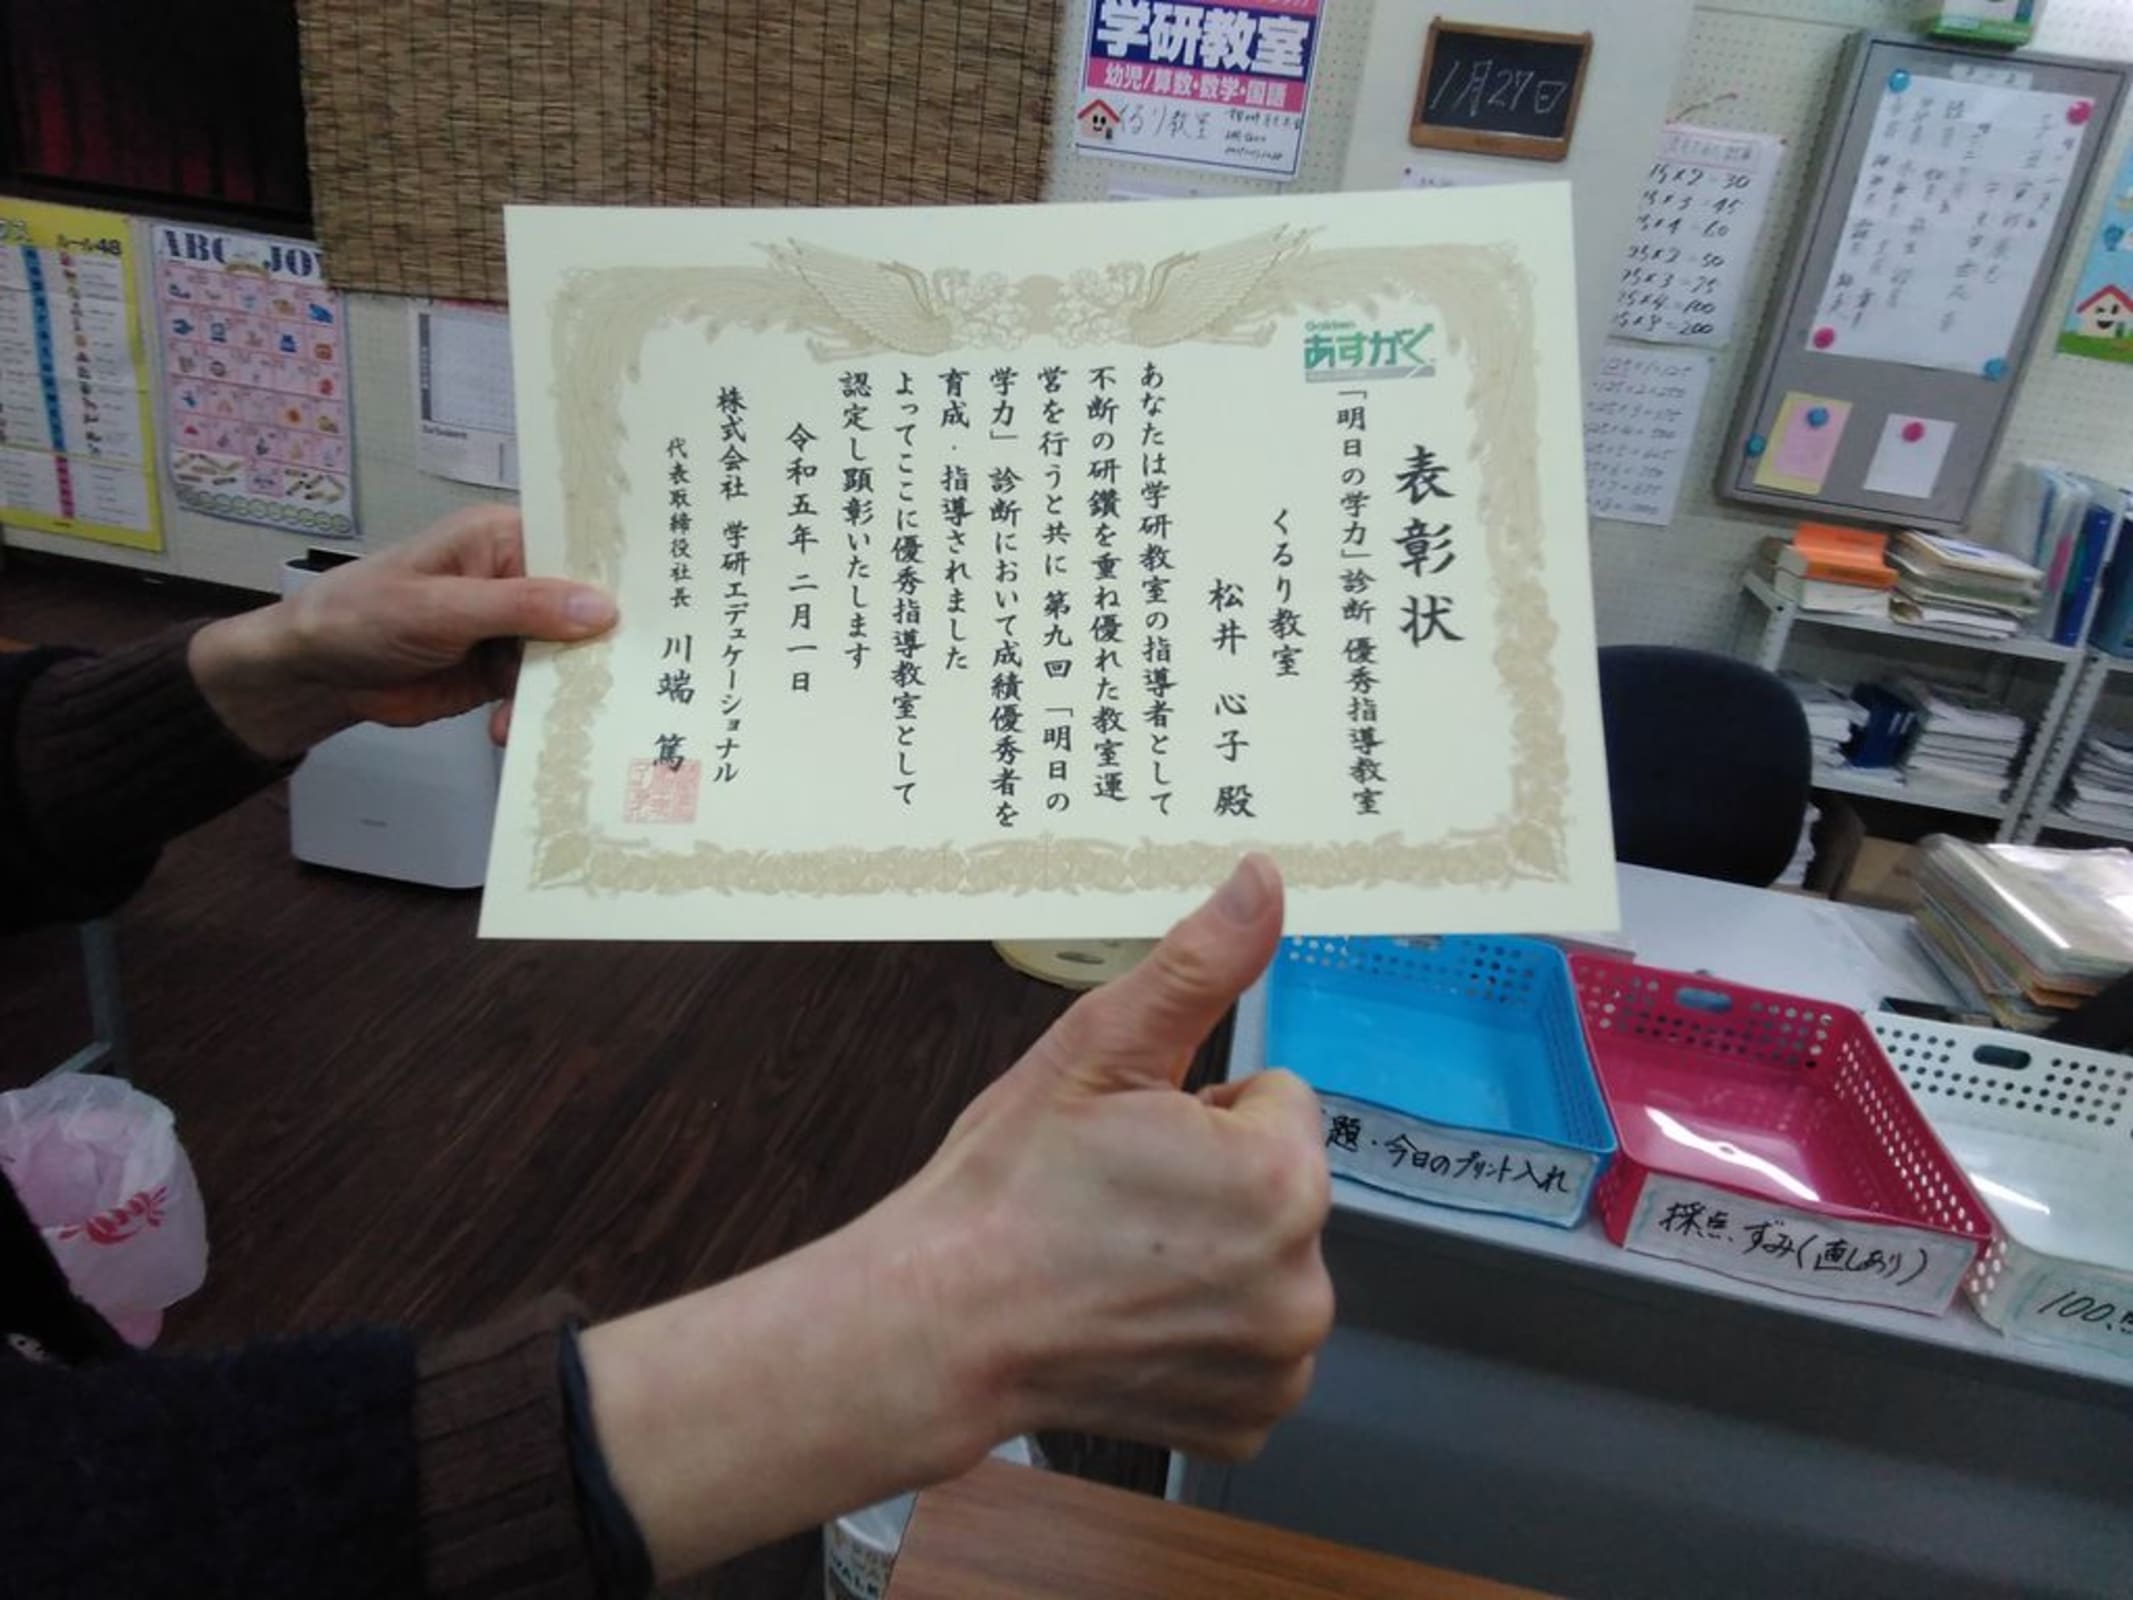 表彰状
Gakken
あすがく
「明日の学力」診断 優秀指導教室
くるり教室
松井 心子 殿
あなたは学研教室の指導者として
不断の研鑽を重ね優れた教室運
営を行うと共に 第九回 「明日の
学力」 診断において成績優秀者を
育成・指導されました
よってここに優秀指導教室として
認定し顕彰いたします
令和五年 二月一日
株式会社 学研エデュケーショナル
代表取締役社長 川端 篤
学研教室
幼児/算数・数学・国語
くるり教室
1月27日
ルール48
ABC JOY
15×2=30
15×3=45
15×4=60
25×2=50
25×3=75
25×4=100
題・今日のプリント入れ
採点ずみ(直しあり)
100点